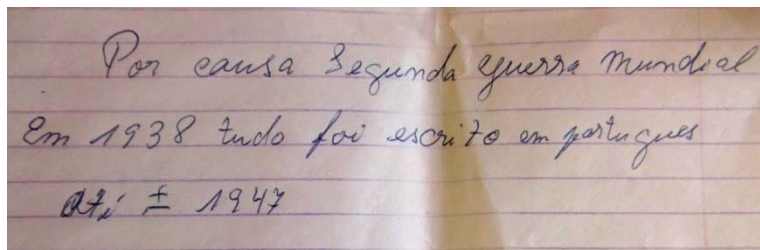 Por causa Segunda guerra mundial
Em 1938 tudo foi escrito em portugues
até ± 1947